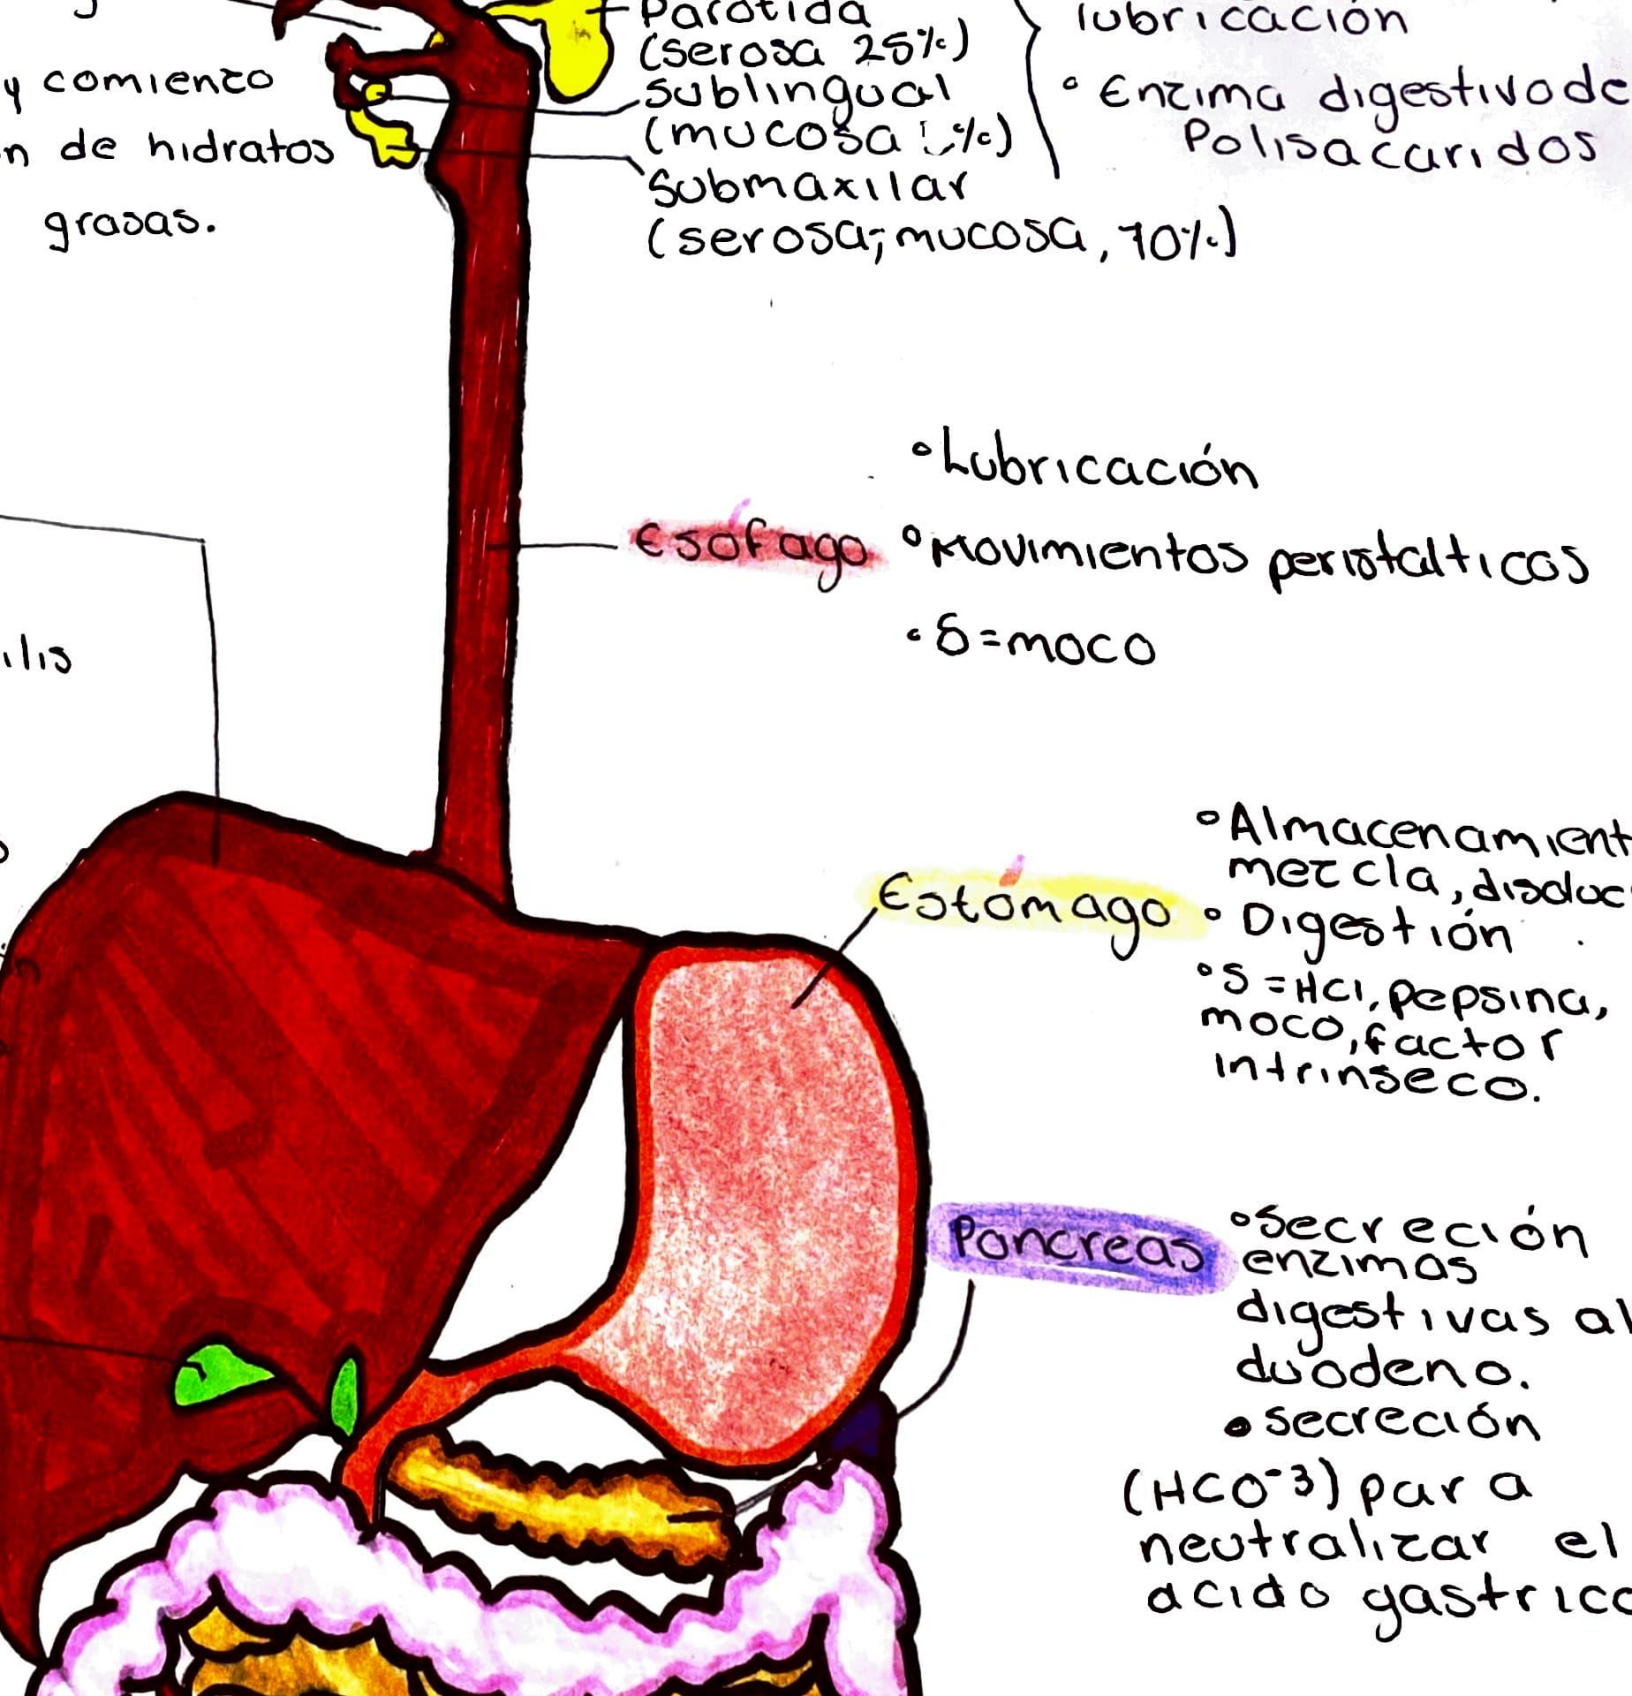 y comienzo
n de hidratos
grasas.
Parótida
(serosa 25%)
sublingual
(mucosa %)
submaxilar
(serosa; mucosa, 70%)
lubricación
° Enzima digestivo de
Polisacaridos
Esófago
°Lubricación
°Movimientos peristalticos
°S=moco
ilis
Estómago
°Almacenamient
mezcla, disoluc
° Digestión
°S=HCl, pepsina,
moco, factor
intrinseco.
Pancreas
°Secreción
enzimas
digestivas al
duodeno.
•secreción
(HCO-3) para
neutralizar el
acido gastrico